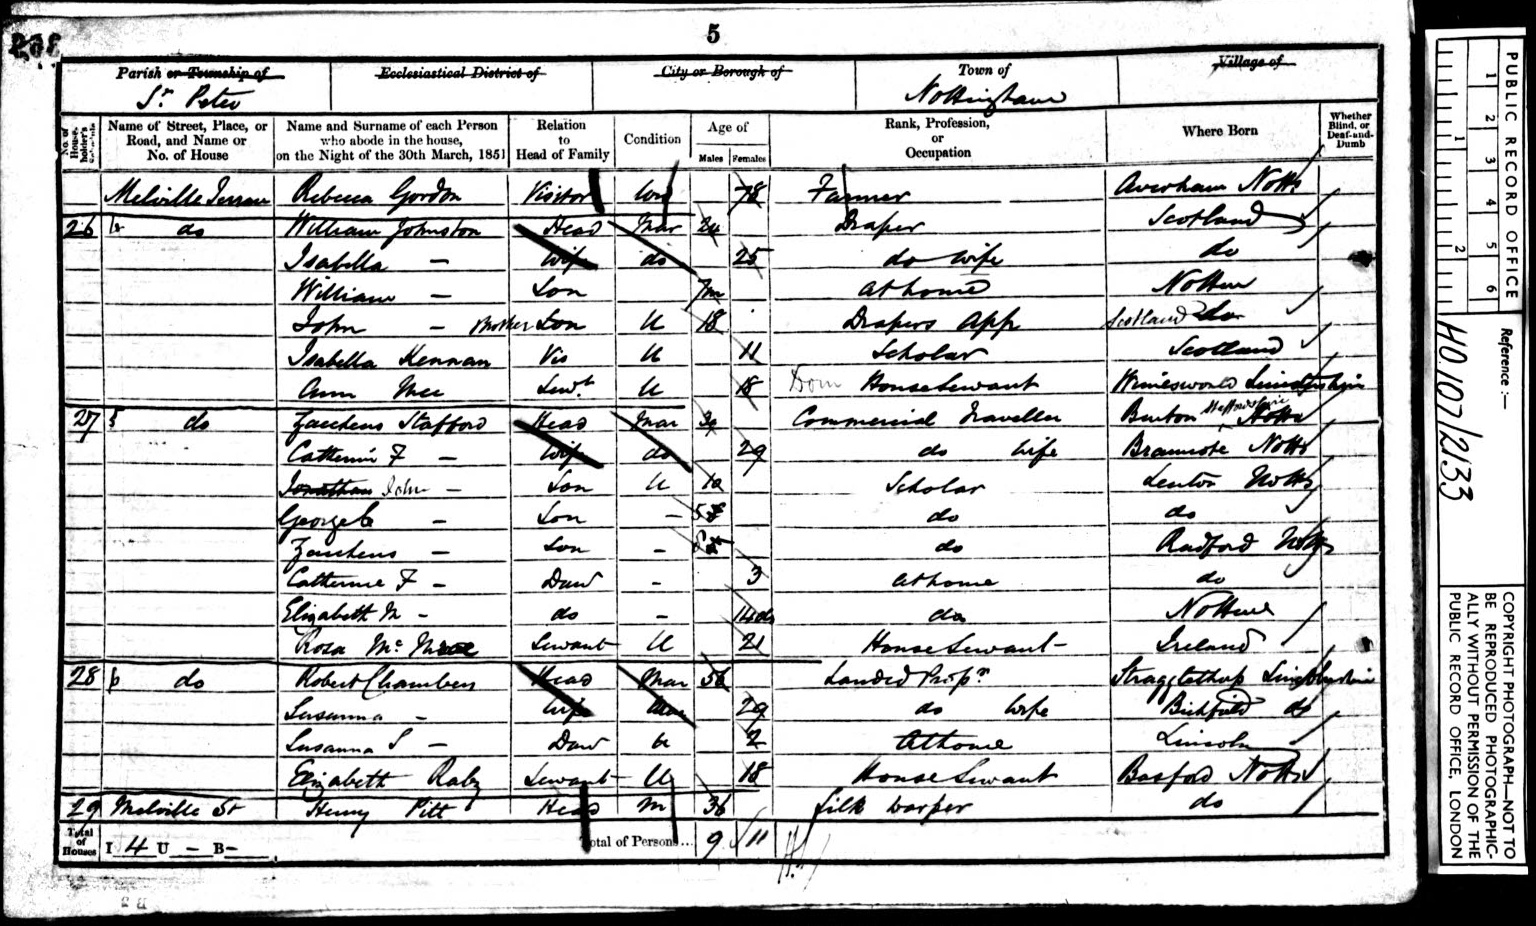 5
Parish or Township of
Ecclesiastical District of
City or Borough of
Town of
Village of
St Peter
Nottingham
No. of House-holder's
Name of Street, Place, or Road, and Name or No. of House
Name and Surname of each Person who abode in the house, on the Night of the 30th March, 1851
Relation to Head of Family
Condition
Age of
Males Females
Rank, Profession, or Occupation
Where Born
Whether Blind, or Deaf-and-Dumb
Melville Terrace Rebecca Gordon Visitor 78 Farmer Averham Notts
26 do William Johnston Head Mar 24 Draper Scotland
Isabella — Wife do 25 do wife do
William — Son 7m At home Nottm
John — Mother Son U 18 Drapers App Scotland
Isabella Kennan Vis U 11 Scholar Scotland
Ann Mee Servt U 18 Dom House Servant Wimeswould
27 do Zacchens Stafford Head Mar 30 Commercial Traveller Burton Staffordshire Notts
Catherine F — Wife do 29 do Wife Bramcote Notts
Jonathan John — Son U 10 Scholar Lenton Notts
George C — Son — do do
Zacchens — Son — do Radford Notts
Catherine F — Daur — 3 At home do
Elizabeth M — do — 14ds do Nottm
Rosa Mc Servant U 21 House Servant Ireland
28 do Robert Chambers Head Mar 56 Landed Propr Stragglethorp Lincolnshire
Susanna — Wife Mar 29 do Wife do
Susanna S — Daur U 2 At home Lincoln
Elizabeth Raby Servant U 18 House Servant Basford Notts
29 Melville St Henry Pitt Head M 36 Silk Warper do
Total of Houses I 4 U — B —
Total of Persons... 9 11
PUBLIC RECORD OFFICE
1 2 3 4 5 6
1 2
Reference :—
HO 107/2133
COPYRIGHT PHOTOGRAPH—NOT TO BE REPRODUCED PHOTOGRAPHICALLY WITHOUT PERMISSION OF THE PUBLIC RECORD OFFICE, LONDON